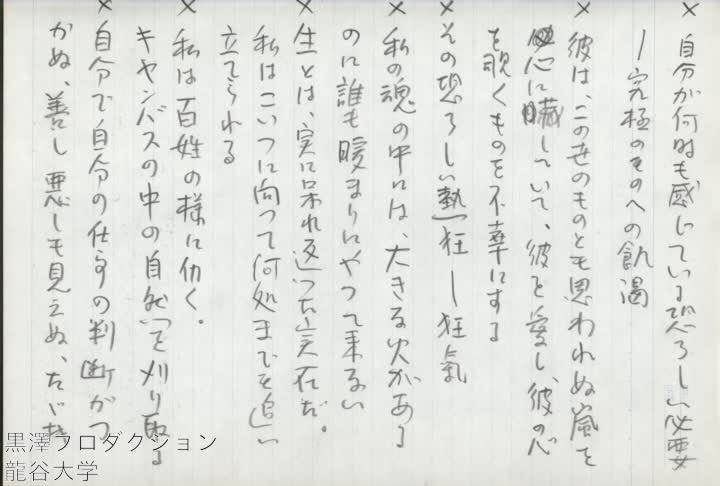 × 自分が何時も感じている恐ろしい必要
― 究極のものへの飢渇
× 彼は、この世のものとも思われぬ嵐を
心に臓していて、彼を愛し、彼の心
を覗くものを不幸にする
× その恐ろしい熱狂 ― 狂氣
× 私の魂の中には、大きな火がある
のに誰も暖まりにやって来ない
× 生とは、実に呆れ返った実在だ。
私はこいつに向って何処までも追い
立てられる
× 私は百姓の様に仂く。
キャンバスの中の自然を刈り取る
× 自分で自分の仕事の判断がつ
かぬ、善し悪しも見えぬ、
黒澤プロダクション
龍谷大学